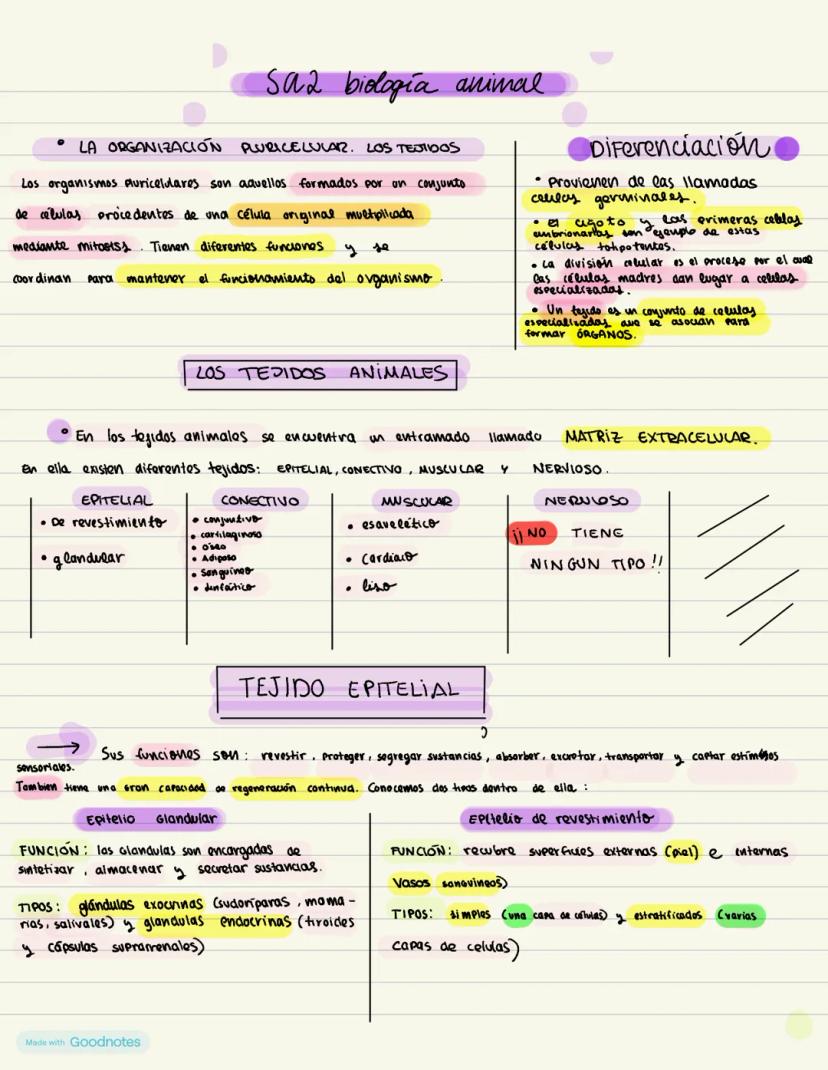 SA2 biología animal
• LA ORGANIZACIÓN PLURICELULAR. LOS TEJIDOS
Los organismos pluricelulares son aquellos formados por un conjunto
de células procedentes de una célula original multiplicada
mediante mitosis. Tienen diferentes funciones y se
coordinan para mantener el funcionamiento del organismo.
Diferenciación
• Provienen de las llamadas
celulas germinales.
• el cigoto y las primeras celulas
embrionarias son ejemplo de estas
células totipotentes.
• La división celular es el proceso por el cual
las células madres dan lugar a celulas
especializadas.
• Un tejido es un conjunto de celulas
especializadas que se asocian para
formar ÓRGANOS.
LOS TEJIDOS ANIMALES
• En los tejidos animales se encuentra un entramado llamado MATRIZ EXTRACELULAR.
En ella existen diferentes tejidos: EPITELIAL, CONECTIVO, MUSCULAR Y NERVIOSO.
EPITELIAL
• De revestimiento
• glandular
CONECTIVO
• conjuntivo
• cartilaginoso
• Óseo
• Adiposo
• Sanguíneo
• Linfático
MUSCULAR
• esquelético
• cardiaco
• liso
NERVIOSO
¡¡NO TIENE
NINGUN TIPO!!
TEJIDO EPITELIAL
→ Sus funciones son: revestir, proteger, segregar sustancias, absorber, excretar, transportar y captar estímulos
sensoriales.
Tambien tiene una gran capacidad de regeneración continua. Conocemos dos tipos dentro de ella:
Epitelio Glandular
FUNCIÓN: las glandulas son encargadas de
sintetizar, almacenar y secretar sustancias.
TIPOS: glándulas exocrinas (sudoríparas, mama-
rias, salivales) y glandulas endocrinas (tiroides
y cápsulas suprarrenales)
Epitelio de revestimiento
FUNCIÓN: recubre superficies externas (piel) e internas
Vasos sanguíneos)
TIPOS: simples (una capa de células) y estratificados (varias
capas de celulas)
Made with Goodnotes